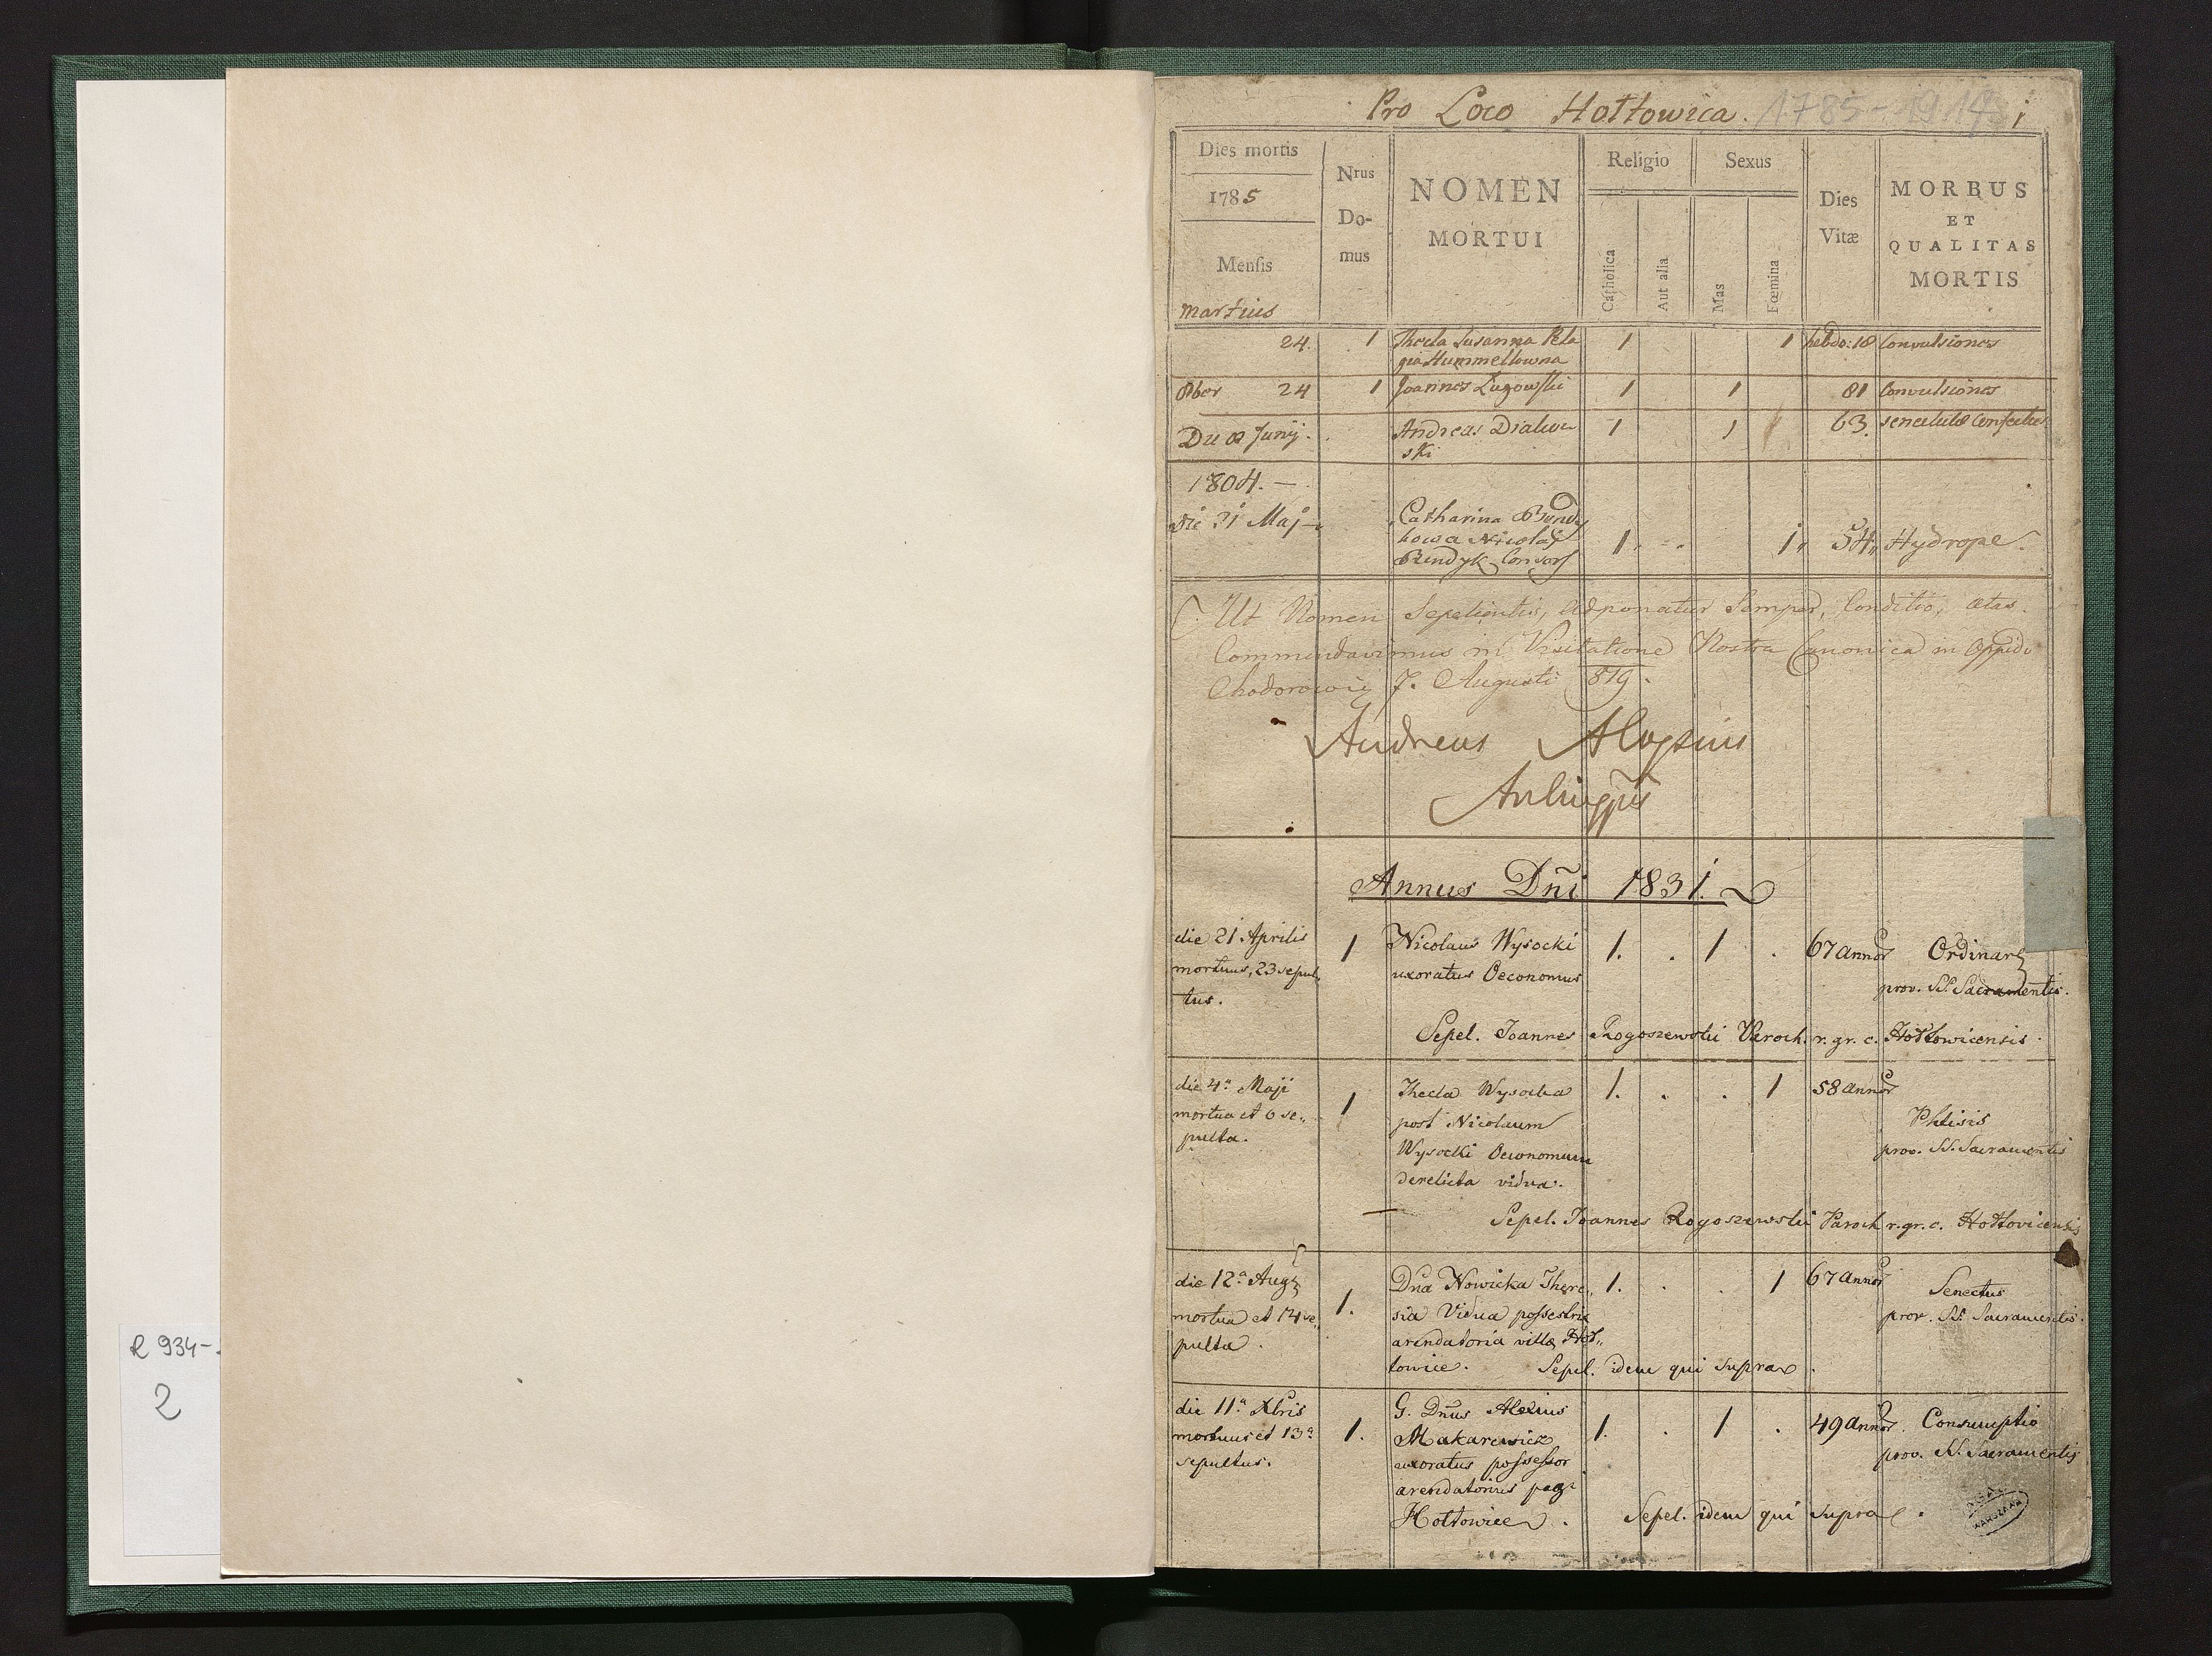 Pro Loco Hołłowica. 1785-1914 1
Dies mortis
1785
Mensis
martius
Nrus
Do-
mus
NOMEN
MORTUI
Religio
Catholica
Aut alia
Sexus
Mas
Fœmina
Dies
Vitæ
MORBUS
ET
QUALITAS
MORTIS
24. 1 Thecla Susanna Pela 1 1 hebdo: 18 Convulsiones
gia Hummellowna
8ber 24 1 Joannes Lugowski 1 1 81 Convulsiones
Die 8 Junij. Andreas 1 1 63. senectute
ski
1804. —
Die 31 Maj Catharina
kowa Nicolaj 1. 1 54 Hydrope.
Bendyk Consors
Ut Nomen Sepelientis, adponatur Semper, Conditio, ætas.
Commendavimus in Visitatione Nostra Canonica in Oppido
Chodorowie 7. Augusti 819.
Andreas Aloysius
Annus Dñi 1831.
die 21 Aprilis 1 Nicolaus Wysocki 1. . 1 . 67 annor Ordinar
mortuus, 23 sepul„ uxoratus Oeconomus prov. SS. Sacramentis.
tus.
Sepel. Joannes Rogoszewski Paroch. r. gr. c. Hołłowicensis.
die 4ª Maji 1 Thecla Wysocka 1. . . 1 58 annor
mortua et 6 se„ post Nicolaum Phtisis
pulta. Wysocki Oeconomum prov. SS. Sacramentis
derelicta vidua.
Sepel. Joannes Rogoszewski Paroch r. gr. c. Hołłovicensis
die 12ª Aug 1. Dña Nowicka There„ 1. . . 1 67 annor Senectus
mortua et 14 se„ sia Vidua possestrix prov. SS. Sacramentis.
pulta. arendatoria villæ Hoł„
łowice. Sepel. idem qui supra.
die 11ª Xbris 1. G. Dñus Alexius 1. . 1 . 49 annor. Consumptio
mortuus et 13ª Makarewicz prov. SS. Sacramentis
sepultus. uxoratus possessor
arendatorius pagi
Hołłowice. Sepel. idem qui supra.
WARSZAWA
R 934-
2